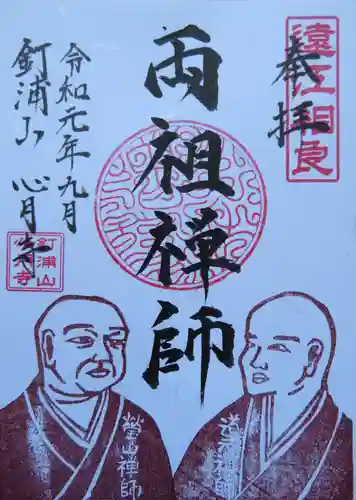 奉拝
遠江相良
両祖禅師
令和元年九月
釘浦山 心月寺
釘浦山
心月寺
瑩山禅師
道元禅師